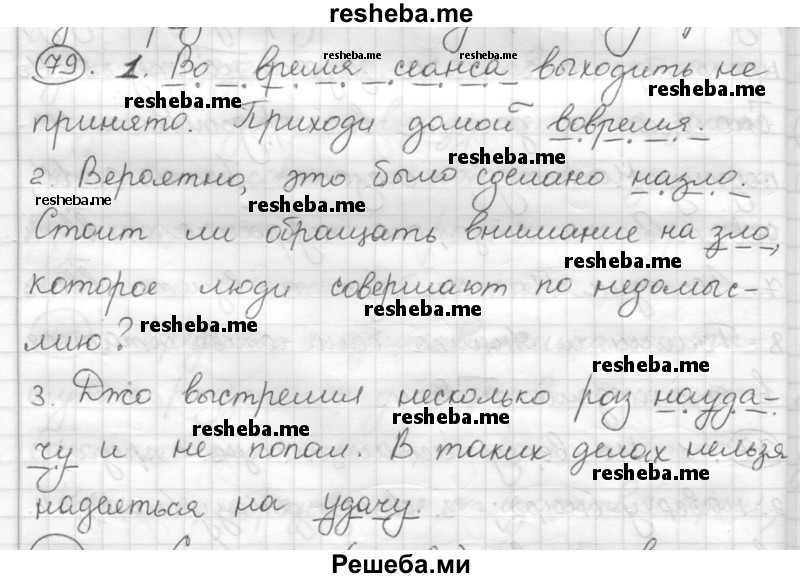 resheba.me
79. 1. Во время сеанса выходить не
resheba.me resheba.me
resheba.me resheba.me
принято. Приходи домой вовремя.
resheba.me
2. Вероятно, это было сделано назло.
resheba.me resheba.me
Стоит ли обращать внимание на зло,
resheba.me
которое люди совершают по недомыс-
resheba.me resheba.me
лию?
resheba.me
3. Джо выстрелил несколько раз науда-
resheba.me resheba.me
чу и не попал. В таких делах нельзя
resheba.me
надеяться на удачу.
Решеба.ми